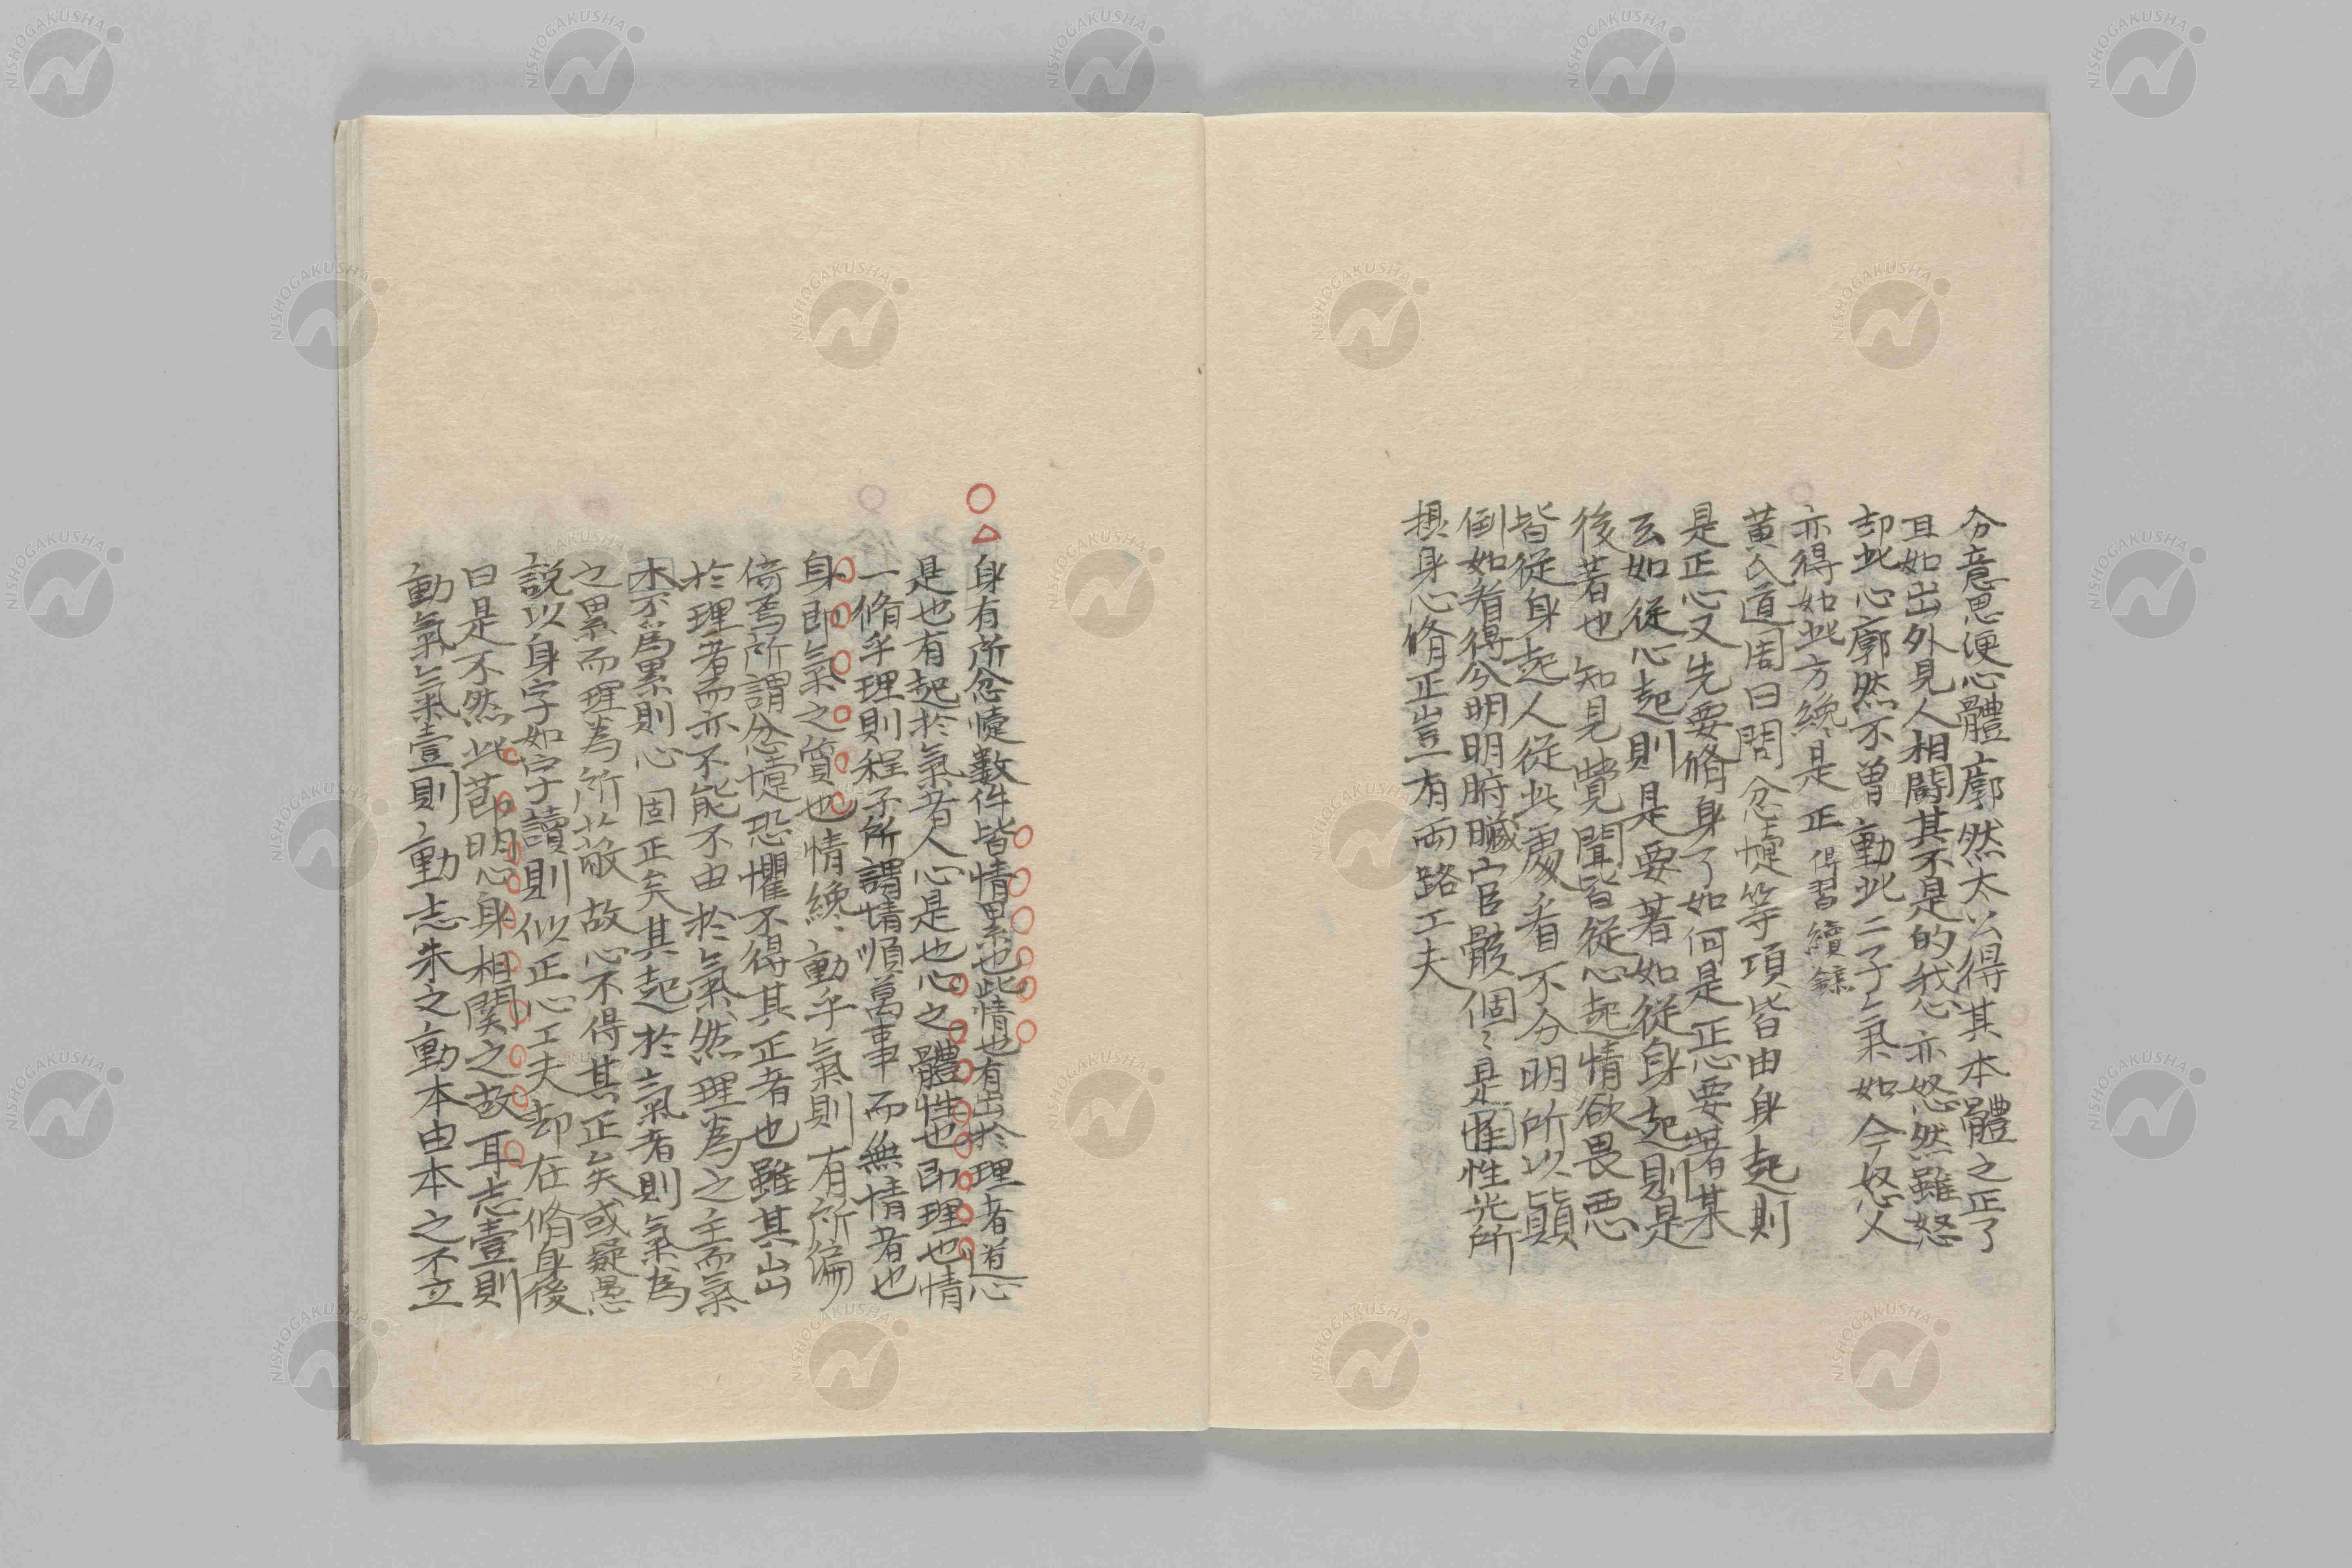 分意思便心體廓然太公得其本體之正了
且如出外見人相鬪其不是的我心亦怒然雖怒
却此心廓然不曾動此二子氣如今怒人
亦得如此方纔是正 傳習續錄
黃氏道周曰問忿懥等項皆由身起則
是正心又先要脩身了如何是正心要著某
云如從心起則是要著如從身起則是
後著也知見覺聞皆從心起情欲畏惡
皆從身起人從此處看不分明所以顚
倒如看得分明明腑臟官骸個〻是惟性光所
摂身心脩正豈有兩路工夫
○△身有所忿懥數件皆情累也此情也有出於理者道心
是也有起於氣者人心是也心之體性也即理也情
一脩乎理則程子所謂情順萬事而無情者也
身即氣之質也情纔動乎氣則有所偏
倚焉所謂忿懥恐懼不得其正者也雖其出
於理者而亦不能不由於氣然理為之主而氣
不爲累則心固正矣其起於氣者則氣為
之累而理為所蔽故心不得其正矣或疑愚
説以身字如字讀則似正心工夫却在脩身後
曰是不然此節明心身相關之故耳志壹則
動氣氣壹則動志朱之動本由本之不立
NISHOGAKUSHA